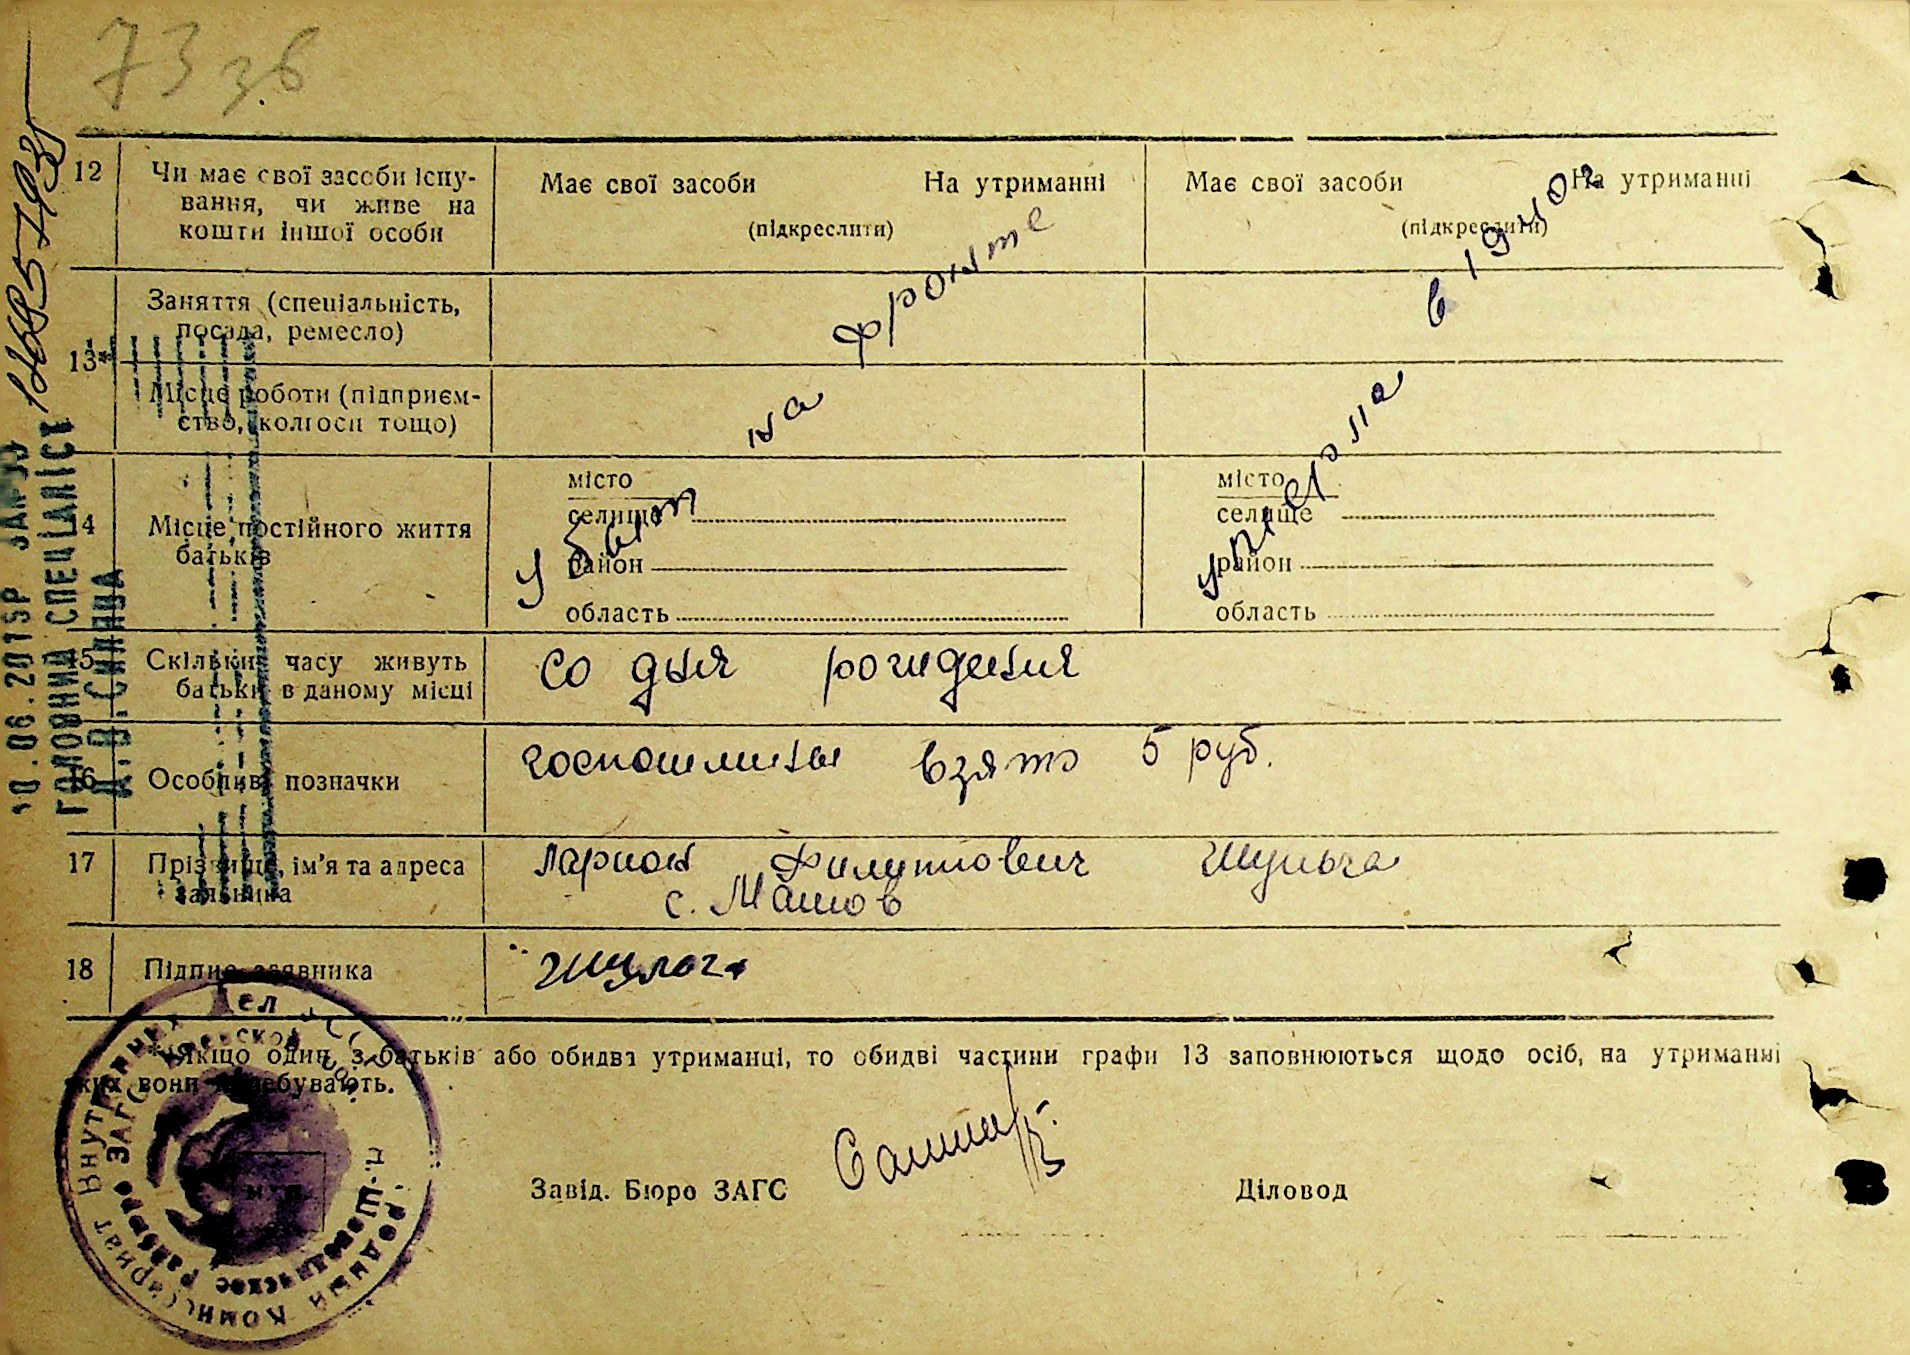 73 зв
12 Чи має свої засоби існу-
вання, чи живе на
кошти іншої особи
Має свої засоби На утриманні
(підкреслити)
Має свої засоби На утриманні
(підкреслити)
13* Заняття (спеціальність,
посада, ремесло)
Місце роботи (підприєм-
ство, колгосп тощо)
убит на фронте
умерла в 1940г
14 Місце постійного життя
батьків
місто
селище
район
область
місто
селище
район
область
15 Скільки часу живуть
батьки в даному місці
со дня рождения
16 Особливі позначки
госпошлины взято 5 руб.
17 Прізвище, ім'я та адреса
заявника
Ларион Филиппович Шульга
с. Машов
18 Підпис заявника
Шульга
*) Якщо один з батьків або обидва утриманці, то обидві частини графи 13 заповнюються щодо осіб, на утриманні
яких вони перебувають.
Завід. Бюро ЗАГС
Діловод
ГОЛОВНИЙ СПЕЦІАЛІСТ
Внутренних Дел УССР
Комиссариат
ЗАГС